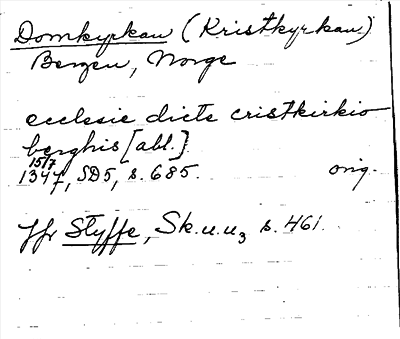 Domkyrkan (Kristkyrkan)
Bergen, Norge
ecclesie dicte cristkirkio
berghis [abl.]
15/7
1347, SD5, s. 685. orig.
Jfr Styffe, Sk.u.u3 s. 461.